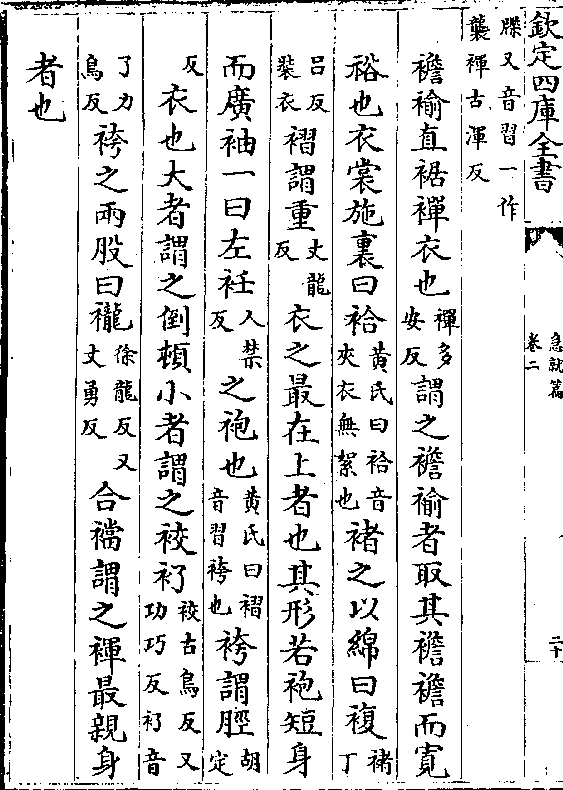 欽定四庫全書
急就篇
卷二
二十
牒又音習一作
襲褌古渾反
襜褕直裾襌衣也襌多安反謂之襜褕者取其襜襜而寛
裕也衣裳施裏曰袷黄氏曰袷音夾衣無絮也褚之以綿曰複褚丁
吕反裝衣褶謂重丈龍反衣之最在上者也其形若袍短身
而廣袖一曰左衽人禁反之袍也黄氏曰褶音習袴也袴謂脛胡定
反衣也大者謂之倒頓小者謂之䘨𧘈䘨古鳥反又功巧反𧘈音
了力鳥反袴之兩股曰襱徐龍反又丈勇反合襠謂之褌最親身
者也